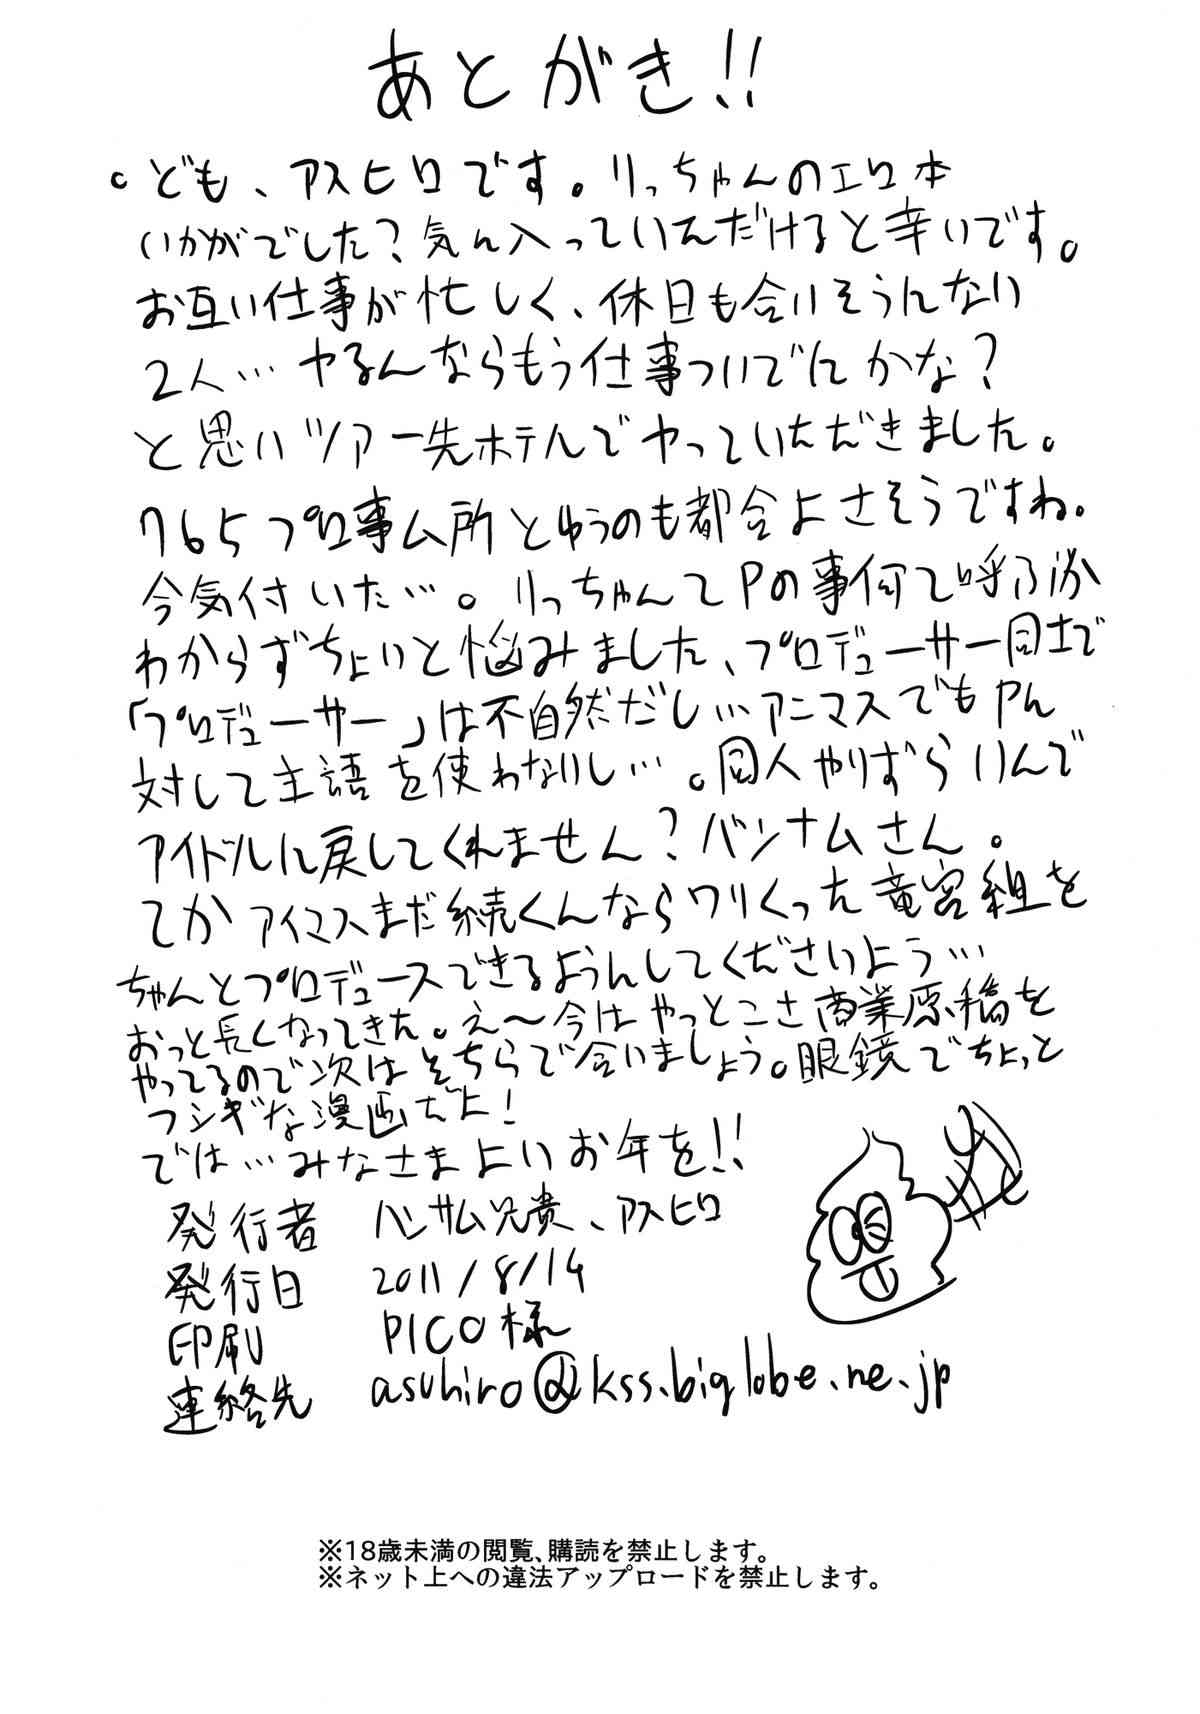 あとがき!!
。ども、アスヒロです。りっちゃんのエロ本
いかがでした？気に入っていただけると幸いです。
お互い仕事が忙しく、休日も合いそうにない
2人…ヤるんならもう仕事ついでにかな？
と思いツアー先ホテルでヤっていただきました。
765プロ事ム所とゆうのも都合よさそうですね。
今気付いた…。りっちゃんてPの事何て呼ぶか
わからずちょいと悩みました、プロデューサー同士で
「プロデューサー」は不自然だし…アニマスでもPに
対して主語を使わないし…。同人やりずらいんで
アイドルに戻してくれません？バンナムさん。
てかアイマスまだ続くんならワリくった竜宮組を
ちゃんとプロデュースできるようにしてくださいよう…
おっと長くなってきた。え～今はやっとこさ商業原稿を
やってるので次はそちらで合いましょう。眼鏡でちょっと
フシギな漫画だよ！
では…みなさまよいお年を!!
発行者 ハンサム兄貴、アスヒロ
発行日 2011/8/14
印刷 PICO様
連絡先 asuhiro@kss.biglobe.ne.jp
※18歳未満の閲覧、購読を禁止します。
※ネット上への違法アップロードを禁止します。